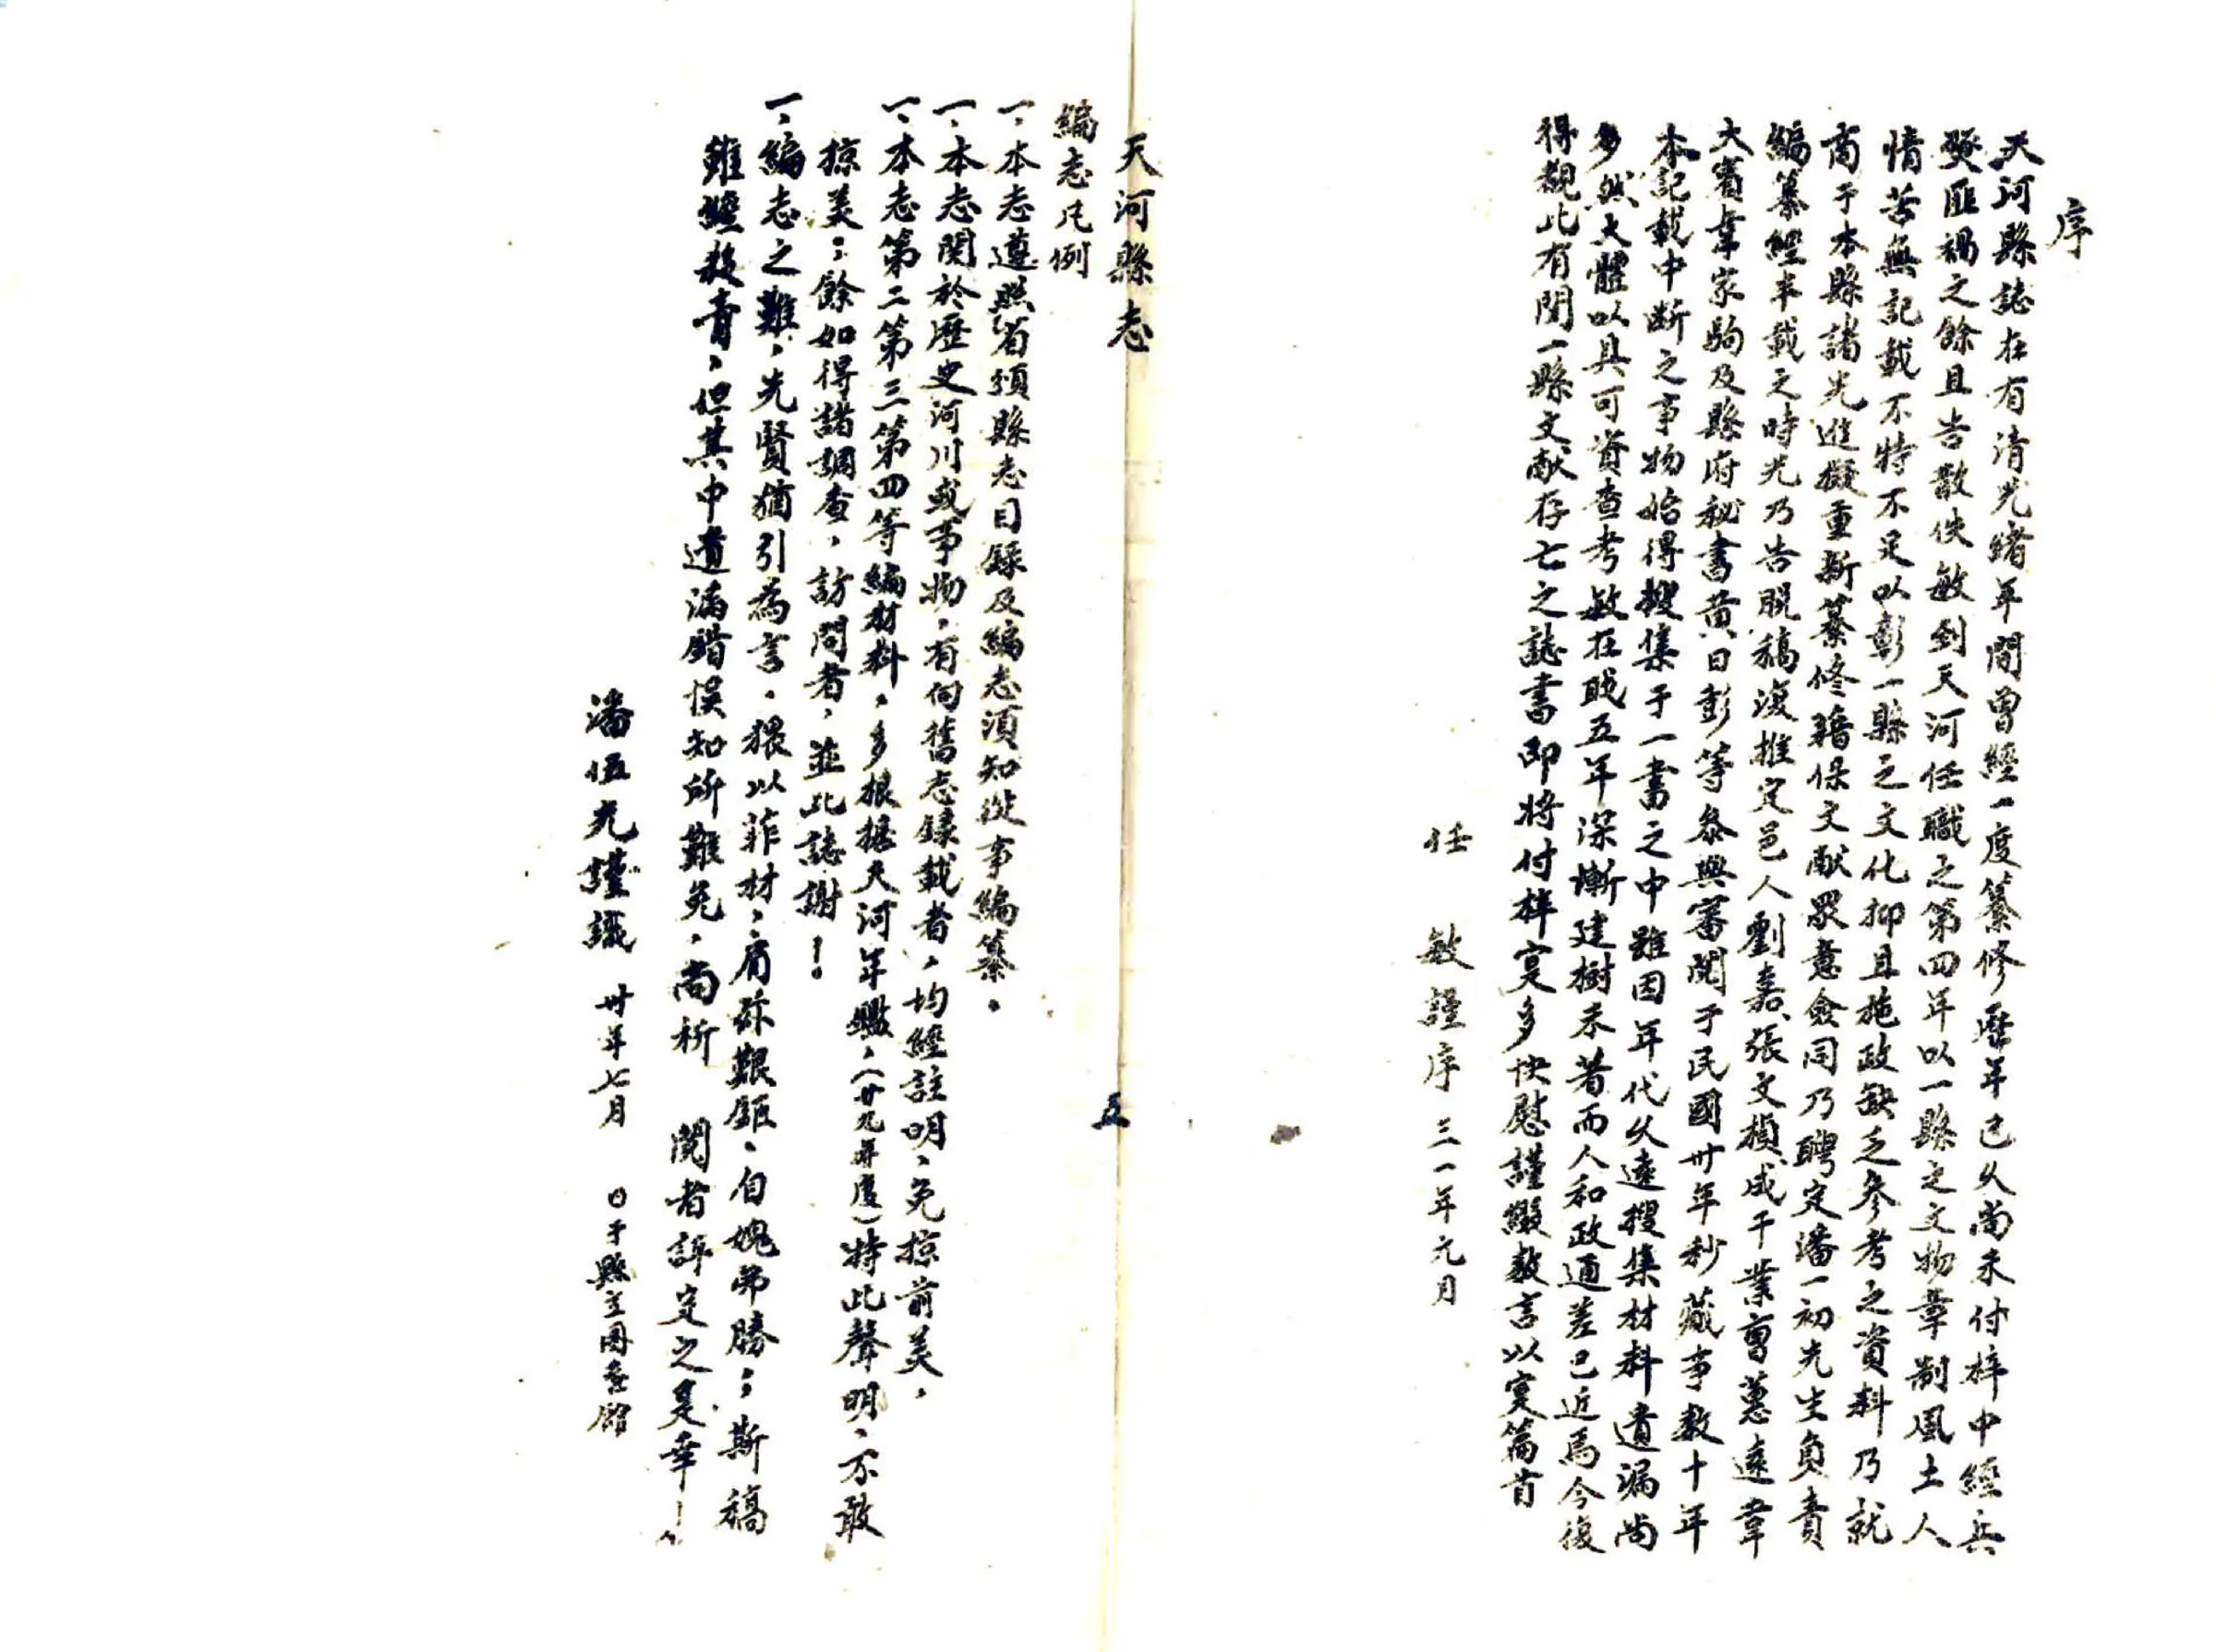 序
天河縣誌在有清光緒年間曾經一度纂修歷年已久尚未付梓中經兵
燹匪禍之餘且告散佚敏到天河任職之第四年以一縣之文物章制風土人
情苦無記載不特不足以彰一縣之文化抑且施政缺乏參考之資料乃就
商于本縣諸先進擬重新纂修藉保文献眾意僉同乃聘定潘一初先生負責
編纂經半載之時光乃告脫稿復推定邑人劉嘉張文楨成千業曾蕙遠韋
大賓韋家駒及縣府秘書黃日彭等叅與審閱于民國卅年秒蕆事数十年
本記載中断之事物始得搜集于一書之中雖因年代久遠搜集材料遺漏尚
多然大體以具可資查考敏在戝五年深慚建樹未著而人和政通差已近焉今復
得覩此有関一縣文献存亡之誌書即將付梓寔多快慰謹綴数言以寔篇首
任 敏謹序 三一年元月
天河縣志 五
編志凡例
一、本志遵照省頒縣志目錄及編志須知從事編纂。
一、本志関於歷史河川或事物，有何舊志錄載者，均經註明，免掠前美，
一、本志第二第三第四等編材料，多根据天河年鑑，（廿九年度）特此聲明，不敢
掠美；餘如得諸調查，訪問者，並此誌謝！
一，編志之難，先賢猶引為言。猥以菲材，肩茲艱鉅，自媿弗勝；斯稿
雖經殺青，但其中遺漏錯悞知所難免，尚祈 閱者評定之是幸！
潘伍光謹識 卅年七月 日于縣立圖書館